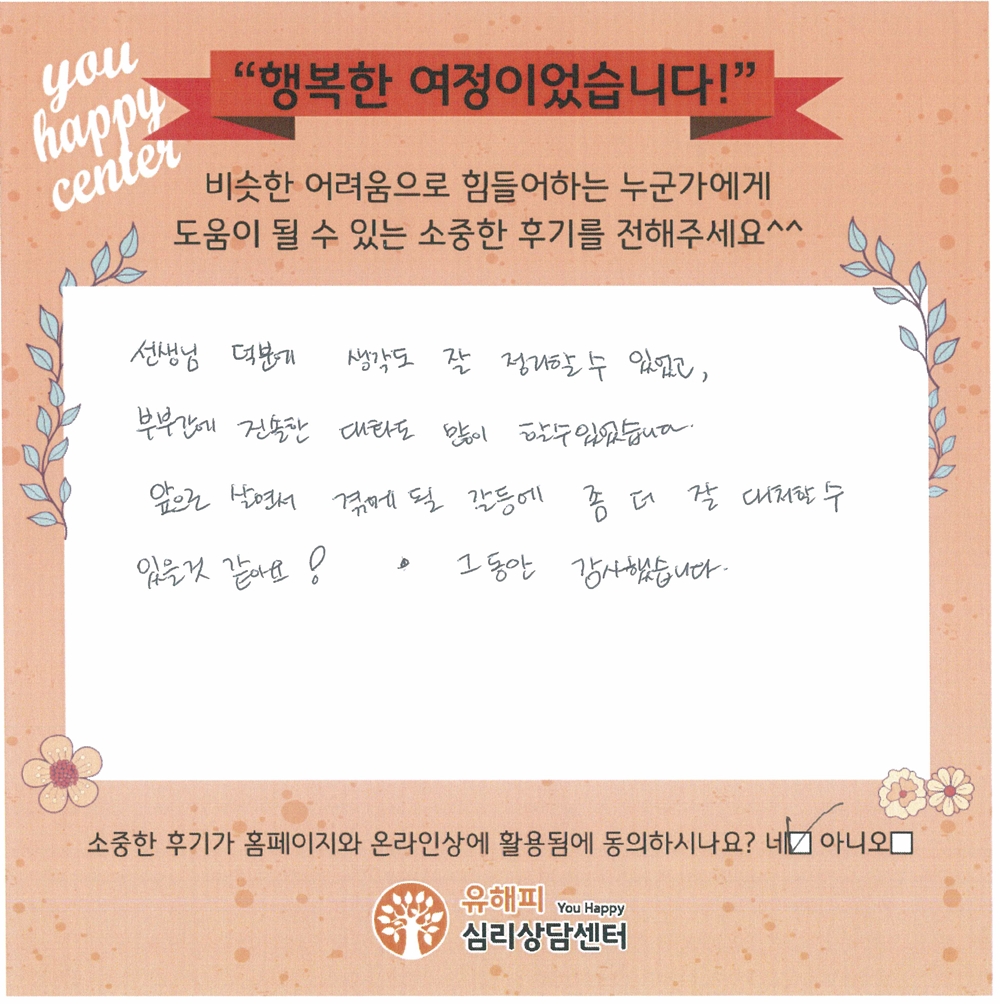 you
happy
center
“행복한 여정이었습니다!”
비슷한 어려움으로 힘들어하는 누군가에게
도움이 될 수 있는 소중한 후기를 전해주세요^^
선생님 덕분에 생각도 잘 정리할 수 있었고,
부부간에 진솔한 대화도 많이 할수있었습니다.
앞으로 살면서 겪게 될 갈등에 좀 더 잘 대처할 수
있을것 같아요! 그동안 감사했습니다.
소중한 후기가 홈페이지와 온라인상에 활용됨에 동의하시나요? 네☑ 아니오☐
유해피 You Happy
심리상담센터